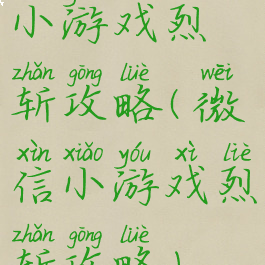 小游戏烈
zhǎn gōng lüè wēi
斩攻略(微
xìn xiǎo yóu xì liè
信小游戏烈
zhǎn gōng lüè
斩攻略)